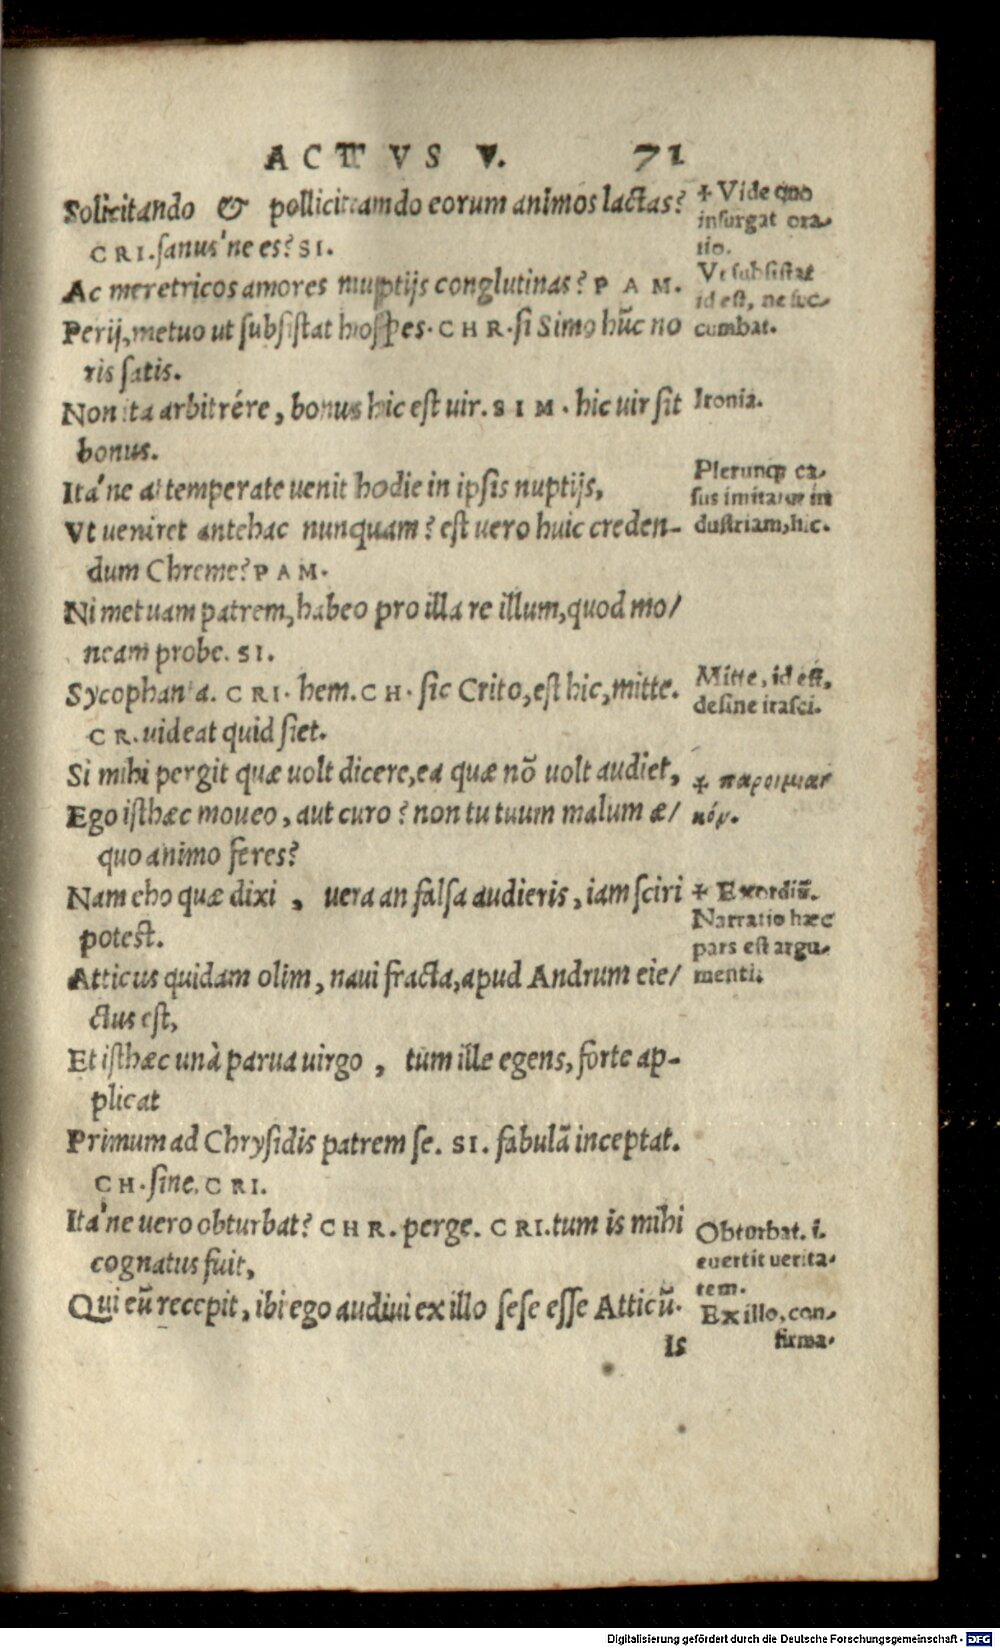 ACTVS V. 71
Solicitando & pollicitando eorum animos lactas?
CRI. sanus'ne es? SI.
Ac meretricos amores nuptijs conglutinas? PAM.
Perij, metuo ut subsistat hospes. CHR. si Simo hūc no
ris satis.
Non ita arbitrére, bonus hic est uir. SIM. hic uir sit
bonus.
Ita'ne attemperate uenit hodie in ipsis nuptijs,
Vt ueniret antehac nunquam? est uero huic creden-
dum Chreme? PAM.
Ni metuam patrem, habeo pro illa re illum, quod mo/
neam probe. SI.
Sycophanta. CRI. hem. CH. sic Crito, est hic, mitte.
CR. uideat quid siet.
Si mihi pergit quæ uolt dicere, ea quæ nō uolt audiet,
Ego isthæc moueo, aut curo? non tu tuum malum æ/
quo animo feres?
Nam eho quæ dixi , uera an falsa audieris, iam sciri
potest.
Atticus quidam olim, naui fracta, apud Andrum eie/
ctus est,
Et isthæc unà parua uirgo , tum ille egens, forte ap-
plicat
Primum ad Chrysidis patrem se. SI. fabulā inceptat.
CH. sine. CRI.
Ita'ne uero obturbat? CHR. perge. CRI. tum is mihi
cognatus fuit,
Qui eū recepit, ibi ego audiui ex illo sese esse Atticū.
Is
+ Vide quo
insurgat ora-
tio.
Vt subsistat
id est, ne suc-
cumbat.
Ironia.
Plerunq; ca-
sus imitatur in
dustriam, hic.
Mitte, id est,
desine irasci.
+ παροιμιακ
κόν.
+ Exordiū.
Narratio hæc
pars est argu-
menti.
Obturbat. i.
euertit uerita-
tem.
Ex illo, con-
firma-
Digitalisierung gefördert durch die Deutsche Forschungsgemeinschaft - DFG